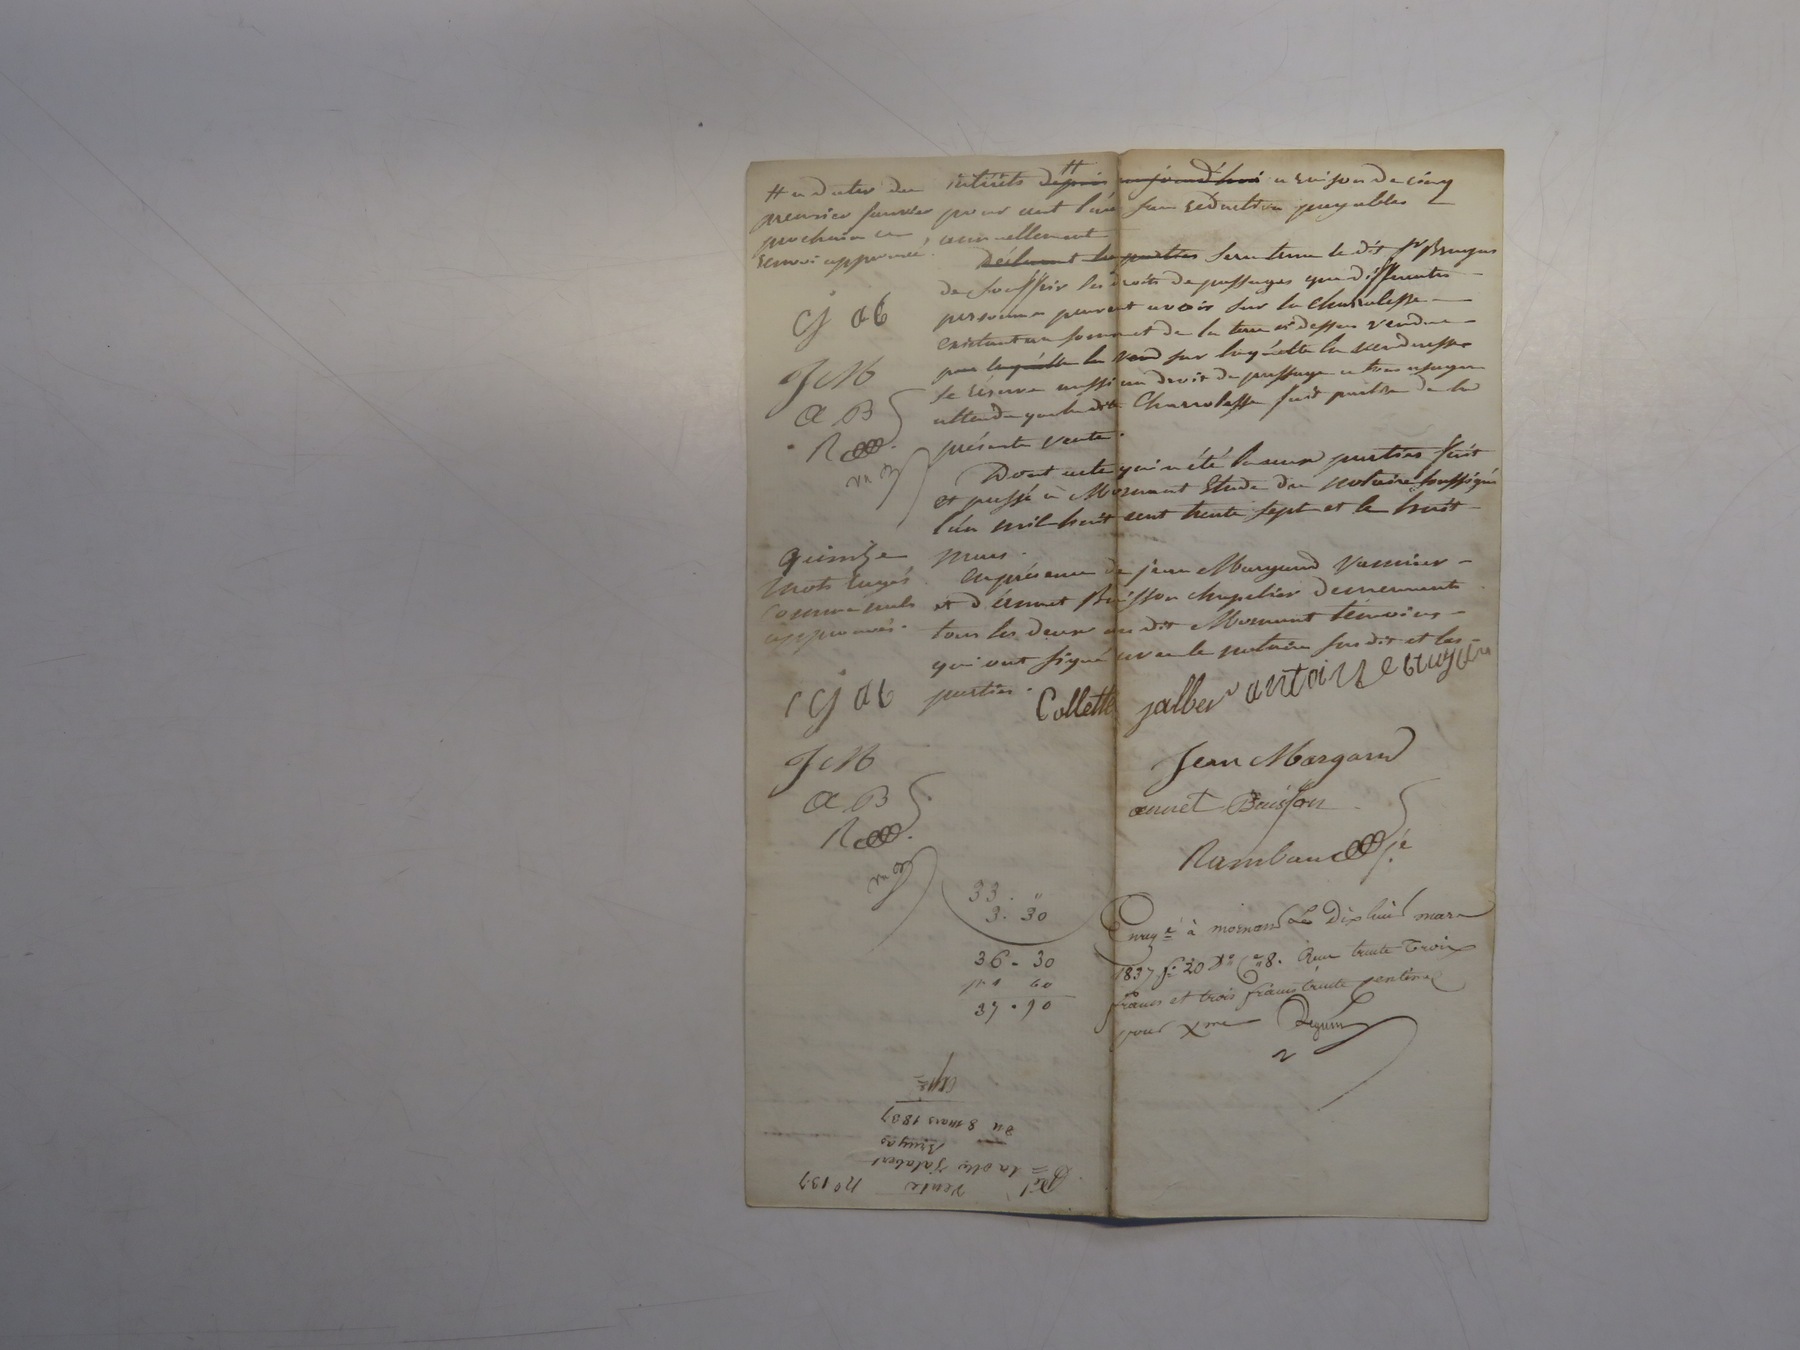 # a dater du
premier janvier
prochain
renvoi approuvé.
CJ AB
JM
A B
R
intérêts # depuis aujourd'hui a raison de cinq
pour cent l'an sans réduction payables
annuellement
Déclarent les parties Sera tenu le dit Sr Bruyas
de Souffrir les droits de passages que différentes
personnes peuvent avoir sur la charrolasse
existant au sommet de la terre ci dessus vendue
par laquelle la vend sur laquelle la venderesse
se réserve aussi un droit de passage a tous usages
attendu que la dite Charrolasse fait partie de la
présente vente.
Dont acte qui a été lu aux parties fait
et passé à Mornant Etude du notaire soussigné
l'an mil huit cent trente sept et le huit
mars.
Enprésence de jean Margand vannier
et d'annet Buisson chapelier demeurants
tous les deux au dit Mornant témoins
qui ont signé avec le notaire susdit et les
parties.
quinze
mots rayés
comme nuls
approuvés.
CJ AB
JM
A B
R
Collette jalber antoine bruyas
Jean Margand
annet Buisson
Rambaud
33. "
3. 30
36 - 30
60
Enreg.é à mornand Le Dix huit mars
1837 f.o 20 V.o C.e 8. Reçu trente Trois
francs et trois francs trente centimes
pour Xme
N° 137 Vente
La Dlle Jalabert
Bruyas
Du 8 mars 1837
Exp.ée